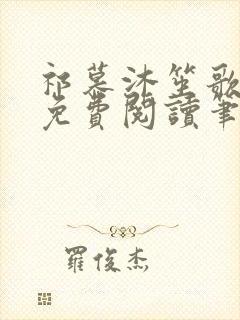 祁慕沐笙歌
免費閱讀筆
羅俊杰